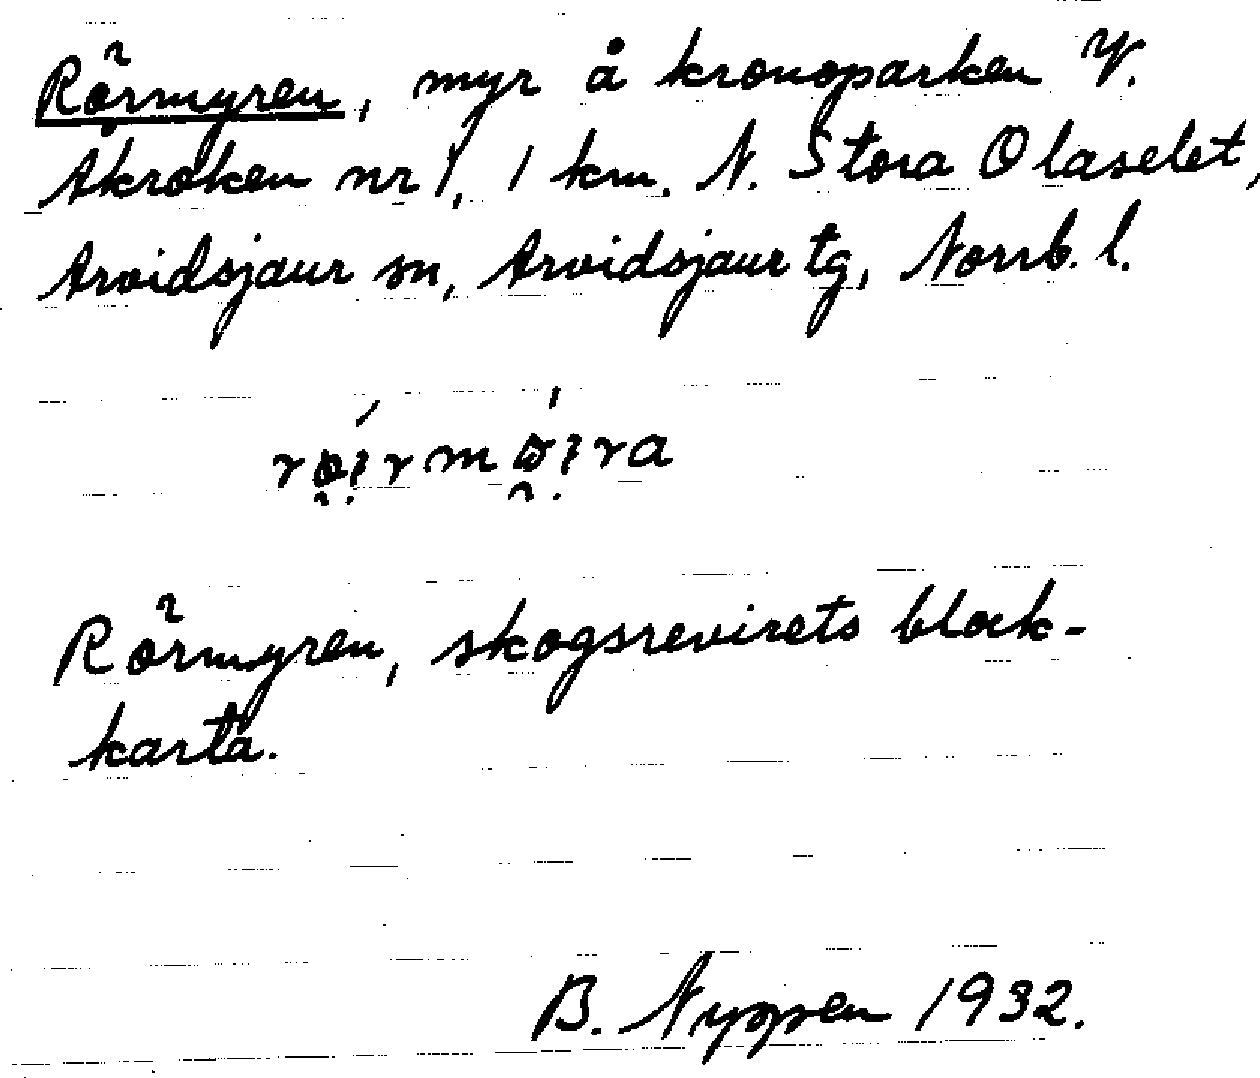 Rörmyren, myr å kronoparken V.
Åkroken nr 1, 1 km. N. Stora Olaselet,
Arvidsjaur sn, Arvidsjaur tg, Norrb. l.
Rörmyren, skogsrevirets block-
karta.
B. Nyppen 1932.